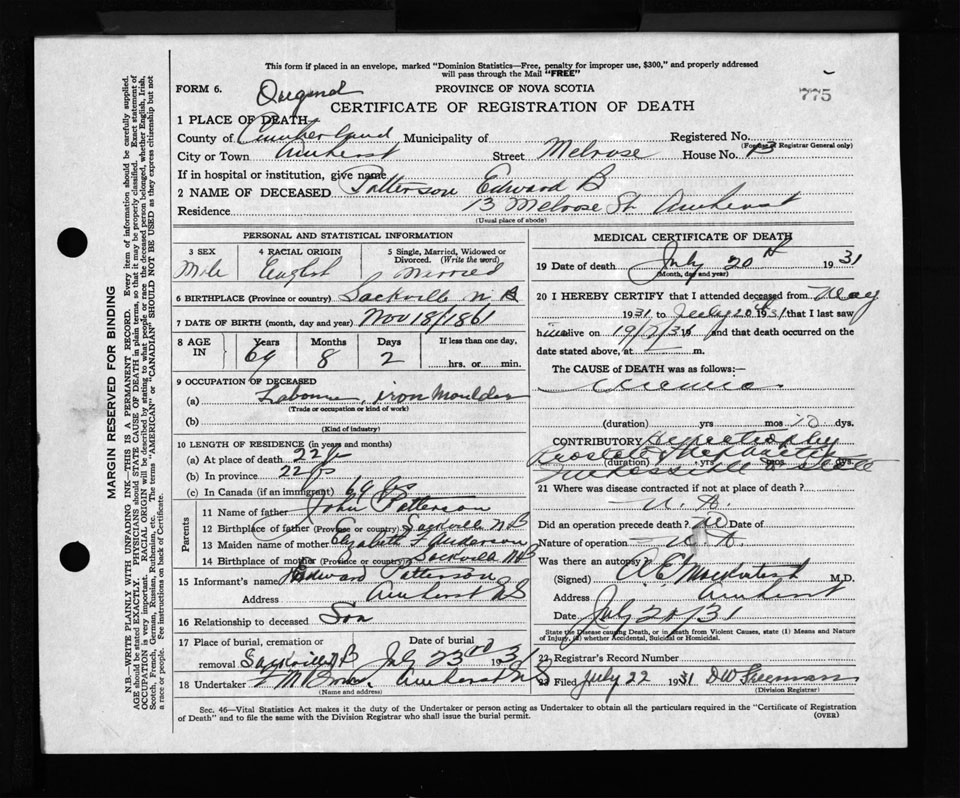 This form if placed in an envelope, marked "Dominion Statistics—Free, penalty for improper use, $300," and properly addressed
will pass through the Mail "FREE"
FORM 6.
PROVINCE OF NOVA SCOTIA
775
CERTIFICATE OF REGISTRATION OF DEATH
1 PLACE OF DEATH
County of Cumberland Municipality of Registered No.
(For use of Registrar General only)
City or Town Amherst Street Melrose House No. 13
If in hospital or institution, give name
2 NAME OF DECEASED Patterson Edward B
Residence 13 Melrose St. Amherst
(Usual place of abode)
PERSONAL AND STATISTICAL INFORMATION
3 SEX 4 RACIAL ORIGIN 5 Single, Married, Widowed or Divorced. (Write the word)
Male English Married
6 BIRTHPLACE (Province or country) Sackville N B
7 DATE OF BIRTH (month, day and year) Nov 18/1861
8 AGE IN Years Months Days If less than one day,
69 8 2 hrs. or min.
9 OCCUPATION OF DECEASED
(a) Labourer, iron Moulder
(Trade or occupation or kind of work)
(b)
(Kind of industry)
10 LENGTH OF RESIDENCE (in years and months)
(a) At place of death 22
(b) In province 22
(c) In Canada (if an immigrant) 69 yrs
Parents
11 Name of father John Patterson
12 Birthplace of father (Province or country) Sackville N.B
13 Maiden name of mother Elizabeth Anderson
14 Birthplace of mother (Province or country) Sackville NB
15 Informant's name Edward Patterson
Address Amherst NS
16 Relationship to deceased Son
17 Place of burial, cremation or Date of burial
removal Sackville N B July 23 1931
18 Undertaker Amherst NS
(Name and address)
MEDICAL CERTIFICATE OF DEATH
19 Date of death July 20th 1931
(Month, day and year)
20 I HEREBY CERTIFY that I attended deceased from May
1931 to July 20 1931 that I last saw
him alive on 19/7/31 and that death occurred on the
date stated above, at m.
The CAUSE of DEATH was as follows:—
Uraemia
(duration) yrs mos 10 dys.
CONTRIBUTORY Hypertrophy
Prostate
(duration) yrs. mos. dys.
21 Where was disease contracted if not at place of death?
Did an operation precede death? No Date of
Nature of operation
Was there an autopsy?
(Signed) M.D.
Address Amherst
Date July 20/31
State the Disease causing Death, or in death from Violent Causes, state (1) Means and Nature
of Injury, (2) whether Accidental, Suicidal or Homicidal.
22 Registrar's Record Number
23 Filed July 22 1931 D W Freeman
(Division Registrar)
Sec. 46—Vital Statistics Act makes it the duty of the Undertaker or person acting as Undertaker to obtain all the particulars required in the "Certificate of Registration
of Death" and to file the same with the Division Registrar who shall issue the burial permit.
(OVER)
MARGIN RESERVED FOR BINDING
N.B.—WRITE PLAINLY WITH UNFADING INK—THIS IS A PERMANENT RECORD. Every item of information should be carefully supplied.
AGE should be stated EXACTLY. PHYSICIANS should STATE CAUSE OF DEATH in plain terms, so that it may be properly classified. Exact statement of
OCCUPATION is very important. RACIAL ORIGIN will be described by stating to what people or race the deceased person belonged, whether English, Irish,
Scotch, French, German, Russian, Ruthenian, etc. The terms "AMERICAN" or "CANADIAN" SHOULD NOT BE USED as they express citizenship but not
a race or people. See instructions on back of Certificate.